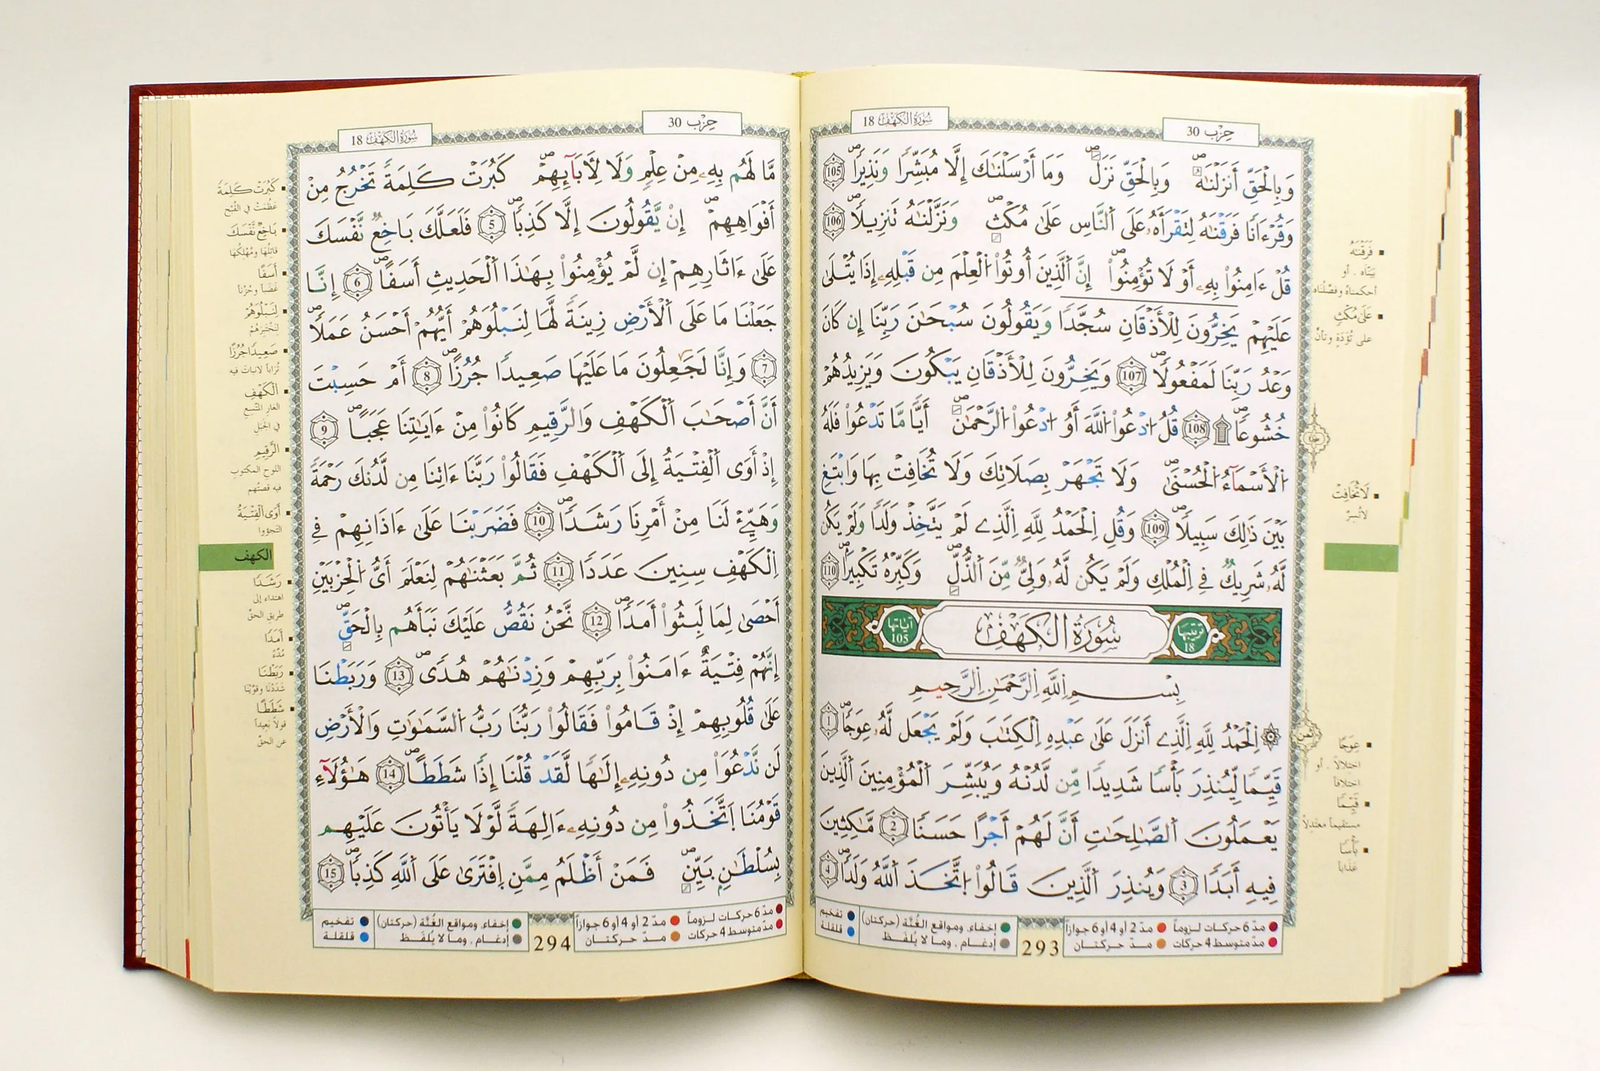 سُورَةُ الكَهْفِ 18
حِزْب 30
وَبِالْحَقِّ أَنزَلْنَٰهُ وَبِالْحَقِّ نَزَلَ وَمَا أَرْسَلْنَٰكَ إِلَّا مُبَشِّرًا وَنَذِيرًا 105
وَقُرْءَانًا فَرَقْنَٰهُ لِتَقْرَأَهُۥ عَلَى النَّاسِ عَلَىٰ مُكْثٍ وَنَزَّلْنَٰهُ تَنزِيلًا 106
قُلْ ءَامِنُوا بِهِۦ أَوْ لَا تُؤْمِنُوا إِنَّ الَّذِينَ أُوتُوا الْعِلْمَ مِن قَبْلِهِۦ إِذَا يُتْلَىٰ
عَلَيْهِمْ يَخِرُّونَ لِلْأَذْقَانِ سُجَّدًا وَيَقُولُونَ سُبْحَٰنَ رَبِّنَا إِن كَانَ
وَعْدُ رَبِّنَا لَمَفْعُولًا 107 وَيَخِرُّونَ لِلْأَذْقَانِ يَبْكُونَ وَيَزِيدُهُمْ
خُشُوعًا 108 قُلُ ادْعُوا اللَّهَ أَوُ ادْعُوا الرَّحْمَٰنَ أَيًّا مَّا تَدْعُوا فَلَهُ
الْأَسْمَاءُ الْحُسْنَىٰ وَلَا تَجْهَرْ بِصَلَاتِكَ وَلَا تُخَافِتْ بِهَا وَابْتَغِ
بَيْنَ ذَٰلِكَ سَبِيلًا 109 وَقُلِ الْحَمْدُ لِلَّهِ الَّذِي لَمْ يَتَّخِذْ وَلَدًا وَلَمْ يَكُن
لَّهُۥ شَرِيكٌ فِي الْمُلْكِ وَلَمْ يَكُن لَّهُۥ وَلِيٌّ مِّنَ الذُّلِّ وَكَبِّرْهُ تَكْبِيرًا 110
ترتيبها 18 سُورَةُ الكَهْفِ آياتها 105
بِسْمِ اللَّهِ الرَّحْمَٰنِ الرَّحِيمِ
الْحَمْدُ لِلَّهِ الَّذِي أَنزَلَ عَلَىٰ عَبْدِهِ الْكِتَٰبَ وَلَمْ يَجْعَل لَّهُۥ عِوَجًا 1
قَيِّمًا لِّيُنذِرَ بَأْسًا شَدِيدًا مِّن لَّدُنْهُ وَيُبَشِّرَ الْمُؤْمِنِينَ الَّذِينَ
يَعْمَلُونَ الصَّٰلِحَٰتِ أَنَّ لَهُمْ أَجْرًا حَسَنًا 2 مَّٰكِثِينَ
فِيهِ أَبَدًا 3 وَيُنذِرَ الَّذِينَ قَالُوا اتَّخَذَ اللَّهُ وَلَدًا 4
فَرَقْنَٰهُ
بيّنّاه . أو
أحكمناهُ وفصّلناه
عَلَىٰ مُكْثٍ
على تُؤَدَةٍ وتأنٍّ
لَا تُخَافِتْ
لا تُسِرّ
عِوَجًا
اختلالاً . أو
اختلافاً
قَيِّمًا
مستقيماً معتدلاً
بَأْسًا
عذابا
مدّ 6 حركات لزوماً مدّ 2 أو 4 أو 6 جوازاً
مدّ متوسط 4 حركات مدّ حركتان
293
إخفاء، ومواقع الغُنَّة (حركتان) تفخيم
إدغام . وما لا يُلفَظ قلقلة
سُورَةُ الكَهْفِ 18
حِزْب 30
مَّا لَهُم بِهِۦ مِنْ عِلْمٍ وَلَا لِأٓبَائِهِمْ كَبُرَتْ كَلِمَةً تَخْرُجُ مِنْ
أَفْوَٰهِهِمْ إِن يَقُولُونَ إِلَّا كَذِبًا 5 فَلَعَلَّكَ بَٰخِعٌ نَّفْسَكَ
عَلَىٰ ءَاثَٰرِهِمْ إِن لَّمْ يُؤْمِنُوا بِهَٰذَا الْحَدِيثِ أَسَفًا 6 إِنَّا
جَعَلْنَا مَا عَلَى الْأَرْضِ زِينَةً لَّهَا لِنَبْلُوَهُمْ أَيُّهُمْ أَحْسَنُ عَمَلًا
7 وَإِنَّا لَجَٰعِلُونَ مَا عَلَيْهَا صَعِيدًا جُرُزًا 8 أَمْ حَسِبْتَ
أَنَّ أَصْحَٰبَ الْكَهْفِ وَالرَّقِيمِ كَانُوا مِنْ ءَايَٰتِنَا عَجَبًا 9
إِذْ أَوَى الْفِتْيَةُ إِلَى الْكَهْفِ فَقَالُوا رَبَّنَا ءَاتِنَا مِن لَّدُنكَ رَحْمَةً
وَهَيِّئْ لَنَا مِنْ أَمْرِنَا رَشَدًا 10 فَضَرَبْنَا عَلَىٰ ءَاذَانِهِمْ فِي
الْكَهْفِ سِنِينَ عَدَدًا 11 ثُمَّ بَعَثْنَٰهُمْ لِنَعْلَمَ أَيُّ الْحِزْبَيْنِ
أَحْصَىٰ لِمَا لَبِثُوا أَمَدًا 12 نَّحْنُ نَقُصُّ عَلَيْكَ نَبَأَهُم بِالْحَقِّ
إِنَّهُمْ فِتْيَةٌ ءَامَنُوا بِرَبِّهِمْ وَزِدْنَٰهُمْ هُدًى 13 وَرَبَطْنَا
عَلَىٰ قُلُوبِهِمْ إِذْ قَامُوا فَقَالُوا رَبُّنَا رَبُّ السَّمَٰوَٰتِ وَالْأَرْضِ
لَن نَّدْعُوَا مِن دُونِهِۦ إِلَٰهًا لَّقَدْ قُلْنَا إِذًا شَطَطًا 14 هَٰؤُلَاءِ
قَوْمُنَا اتَّخَذُوا مِن دُونِهِۦ ءَالِهَةً لَّوْلَا يَأْتُونَ عَلَيْهِم
بِسُلْطَٰنٍ بَيِّنٍ فَمَنْ أَظْلَمُ مِمَّنِ افْتَرَىٰ عَلَى اللَّهِ كَذِبًا 15
كَبُرَتْ كَلِمَةً
عظُمَتْ في القُبْح
بَٰخِعٌ نَّفْسَكَ
قاتِلُها ومُهلِكُها
أَسَفًا
غضباً وحُزْناً
لِنَبْلُوَهُمْ
لنختبرهم
صَعِيدًا جُرُزًا
تُراباً لا نبات فيه
الْكَهْفِ
الغار المتّسع
في الجبل
الرَّقِيمِ
اللوح المكتوب
فيه قصتهم
أَوَى الْفِتْيَةُ
التجؤوا
الكهف
رَشَدًا
اهتداء إلى
طريق الحقّ
أَمَدًا
مُدّة
رَبَطْنَا
شددنا وقوّينا
شَطَطًا
قولاً بعيداً
عن الحقّ
مدّ 6 حركات لزوماً مدّ 2 أو 4 أو 6 جوازاً
مدّ متوسط 4 حركات مدّ حركتان
294
إخفاء، ومواقع الغُنَّة (حركتان) تفخيم
إدغام . وما لا يُلفَظ قلقلة